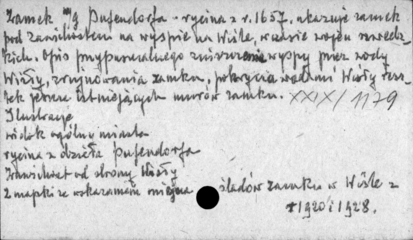 Zamek wg Pufendorfa - rycina z r. 1657. ukazuje zamek
pod Zawichostem na wyspie na Wiśle, w czasie wojen szwedz-
kich. Opis przypuszczalnego zniszczenia wyspy przez wody
Wisły, zrujnowania zamku, pokrycia wodami Wisły resz-
tek jeszcze istniejących murów zamku. XXIX/1179
Ilustracje
widok ogólny miasta
rycina z dzieła Pufendorfa
Zawichost od strony Wisły
2 mapki ze wskazaniem miejsca śladów zamku w Wiśle z
r 1920 i 1928.